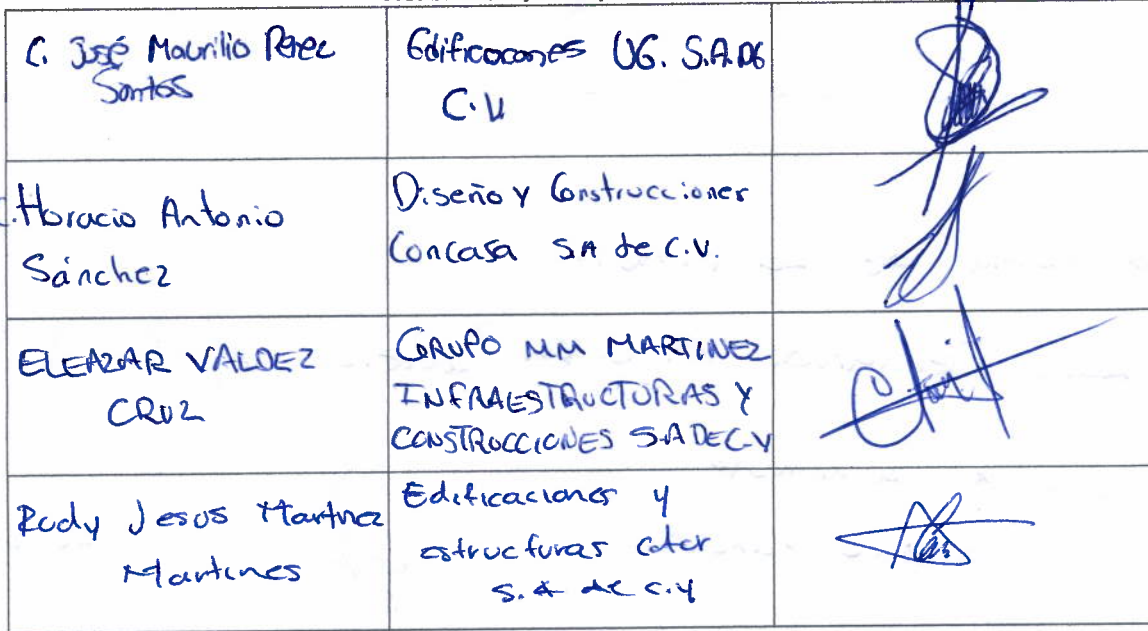 C. José Maurilio Perez
Santos
Edificocones UG. S.A. DE
C.V
C. Horacio Antonio
Sánchez
Diseño y Construcciones
Concasa SA de C.V.
ELEAZAR VALDEZ
CRUZ
GRUPO MM MARTINEZ
INFRAESTRUCTURAS Y
CONSTRUCCIONES S.A DE C.V
Rudy Jesus Martinez
Martines
Edificaciones y
estructuras
S.A de C.V